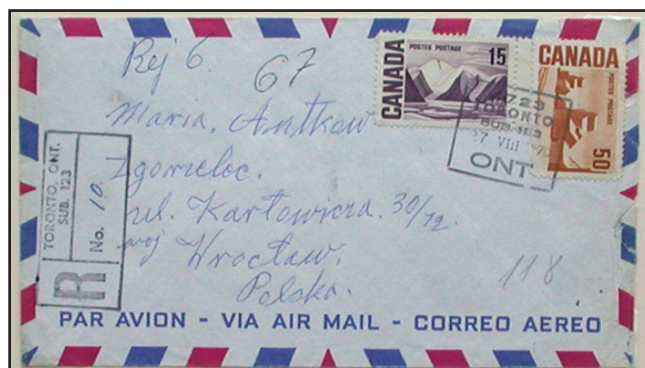 Rej 6.
67
POSTES POSTAGE
15
CANADA
CANADA
POSTES POSTAGE
50
723
TORONTO
SUB. 123
27 VIII 70
ONT
Maria. Antkow
Zgorzelec.
ul. Karłowicza. 30/12.
woj Wrocław.
Polska.
118
TORONTO, ONT.
SUB. 123
No. 10
R
PAR AVION - VIA AIR MAIL - CORREO AEREO